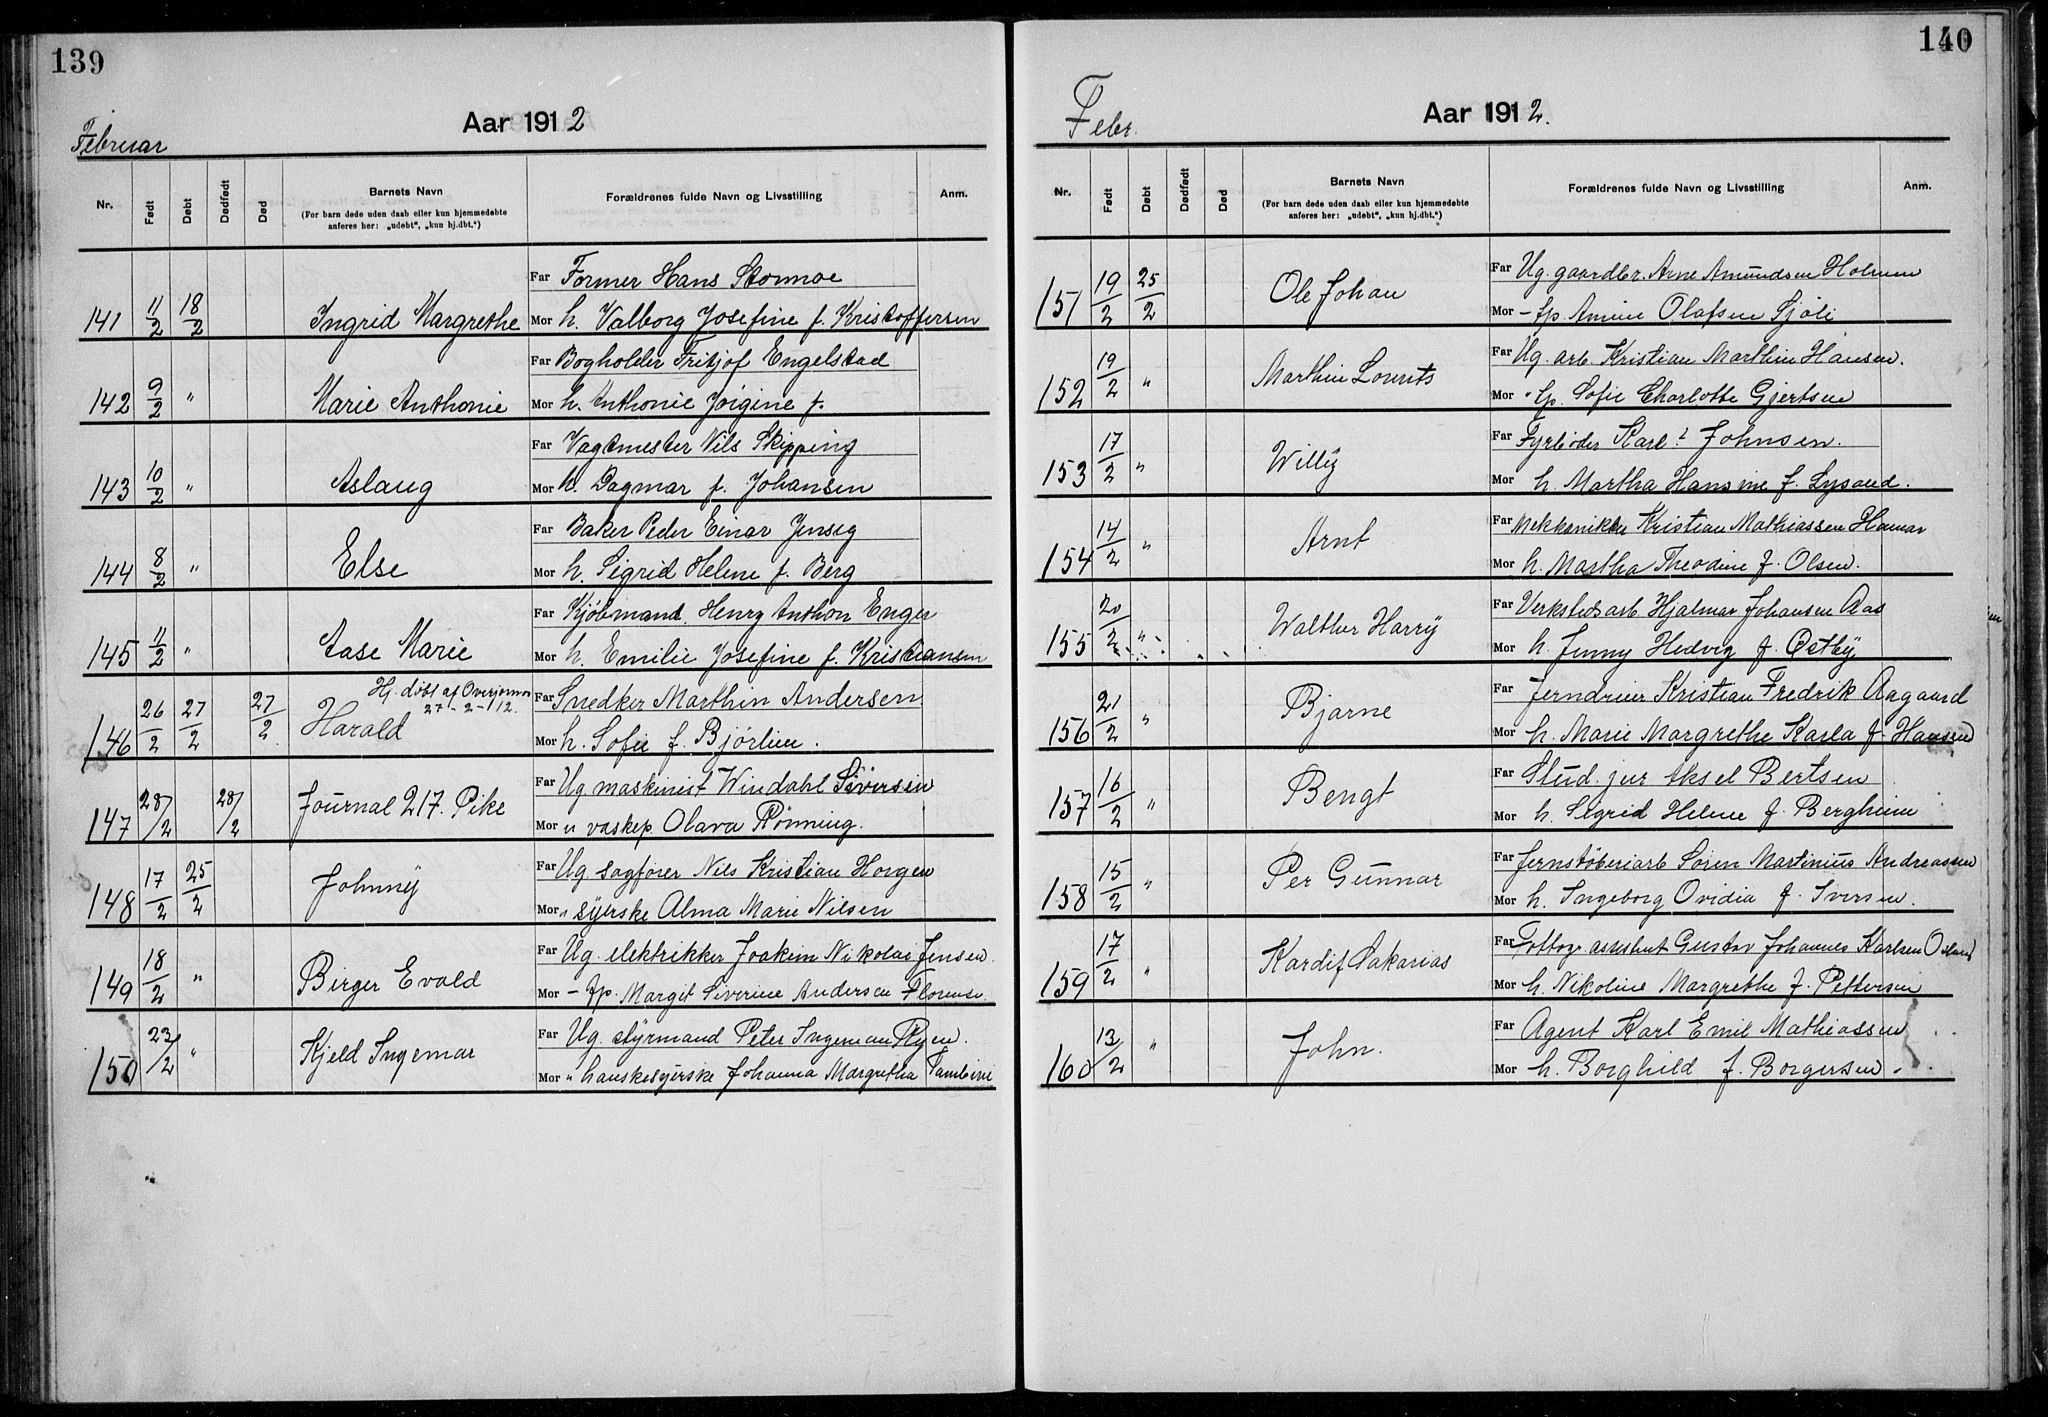 139
Aar 1912
Februar
Nr. Født Døbt Dødfødt Død Barnets Navn Forældrenes fulde Navn og Livsstilling Anm.
(For barn døde uden daab eller kun hjemmedøbte
anføres her: „udøbt“, „kun hj.dbt.“)
Far Former Hans Stormoe
141 11/2 18/2 Ingrid Margrethe Mor h. Valborg Josefine f. Kristoffersen
Far Bogholder Fritjof Engelstad
142 9/2 " Marie Anthonie Mor h. Anthonie Jørgine f.
Far Vagtmester Nils Skipping
143 10/2 " Aslaug Mor h. Dagmar f. Johansen
Far Baker Peder Einar Jensig
144 8/2 " Else Mor h. Sigrid Helene f. Berg
Far Kjøbmand Henry Anthon Enger
145 11/2 " Aase Marie Mor h. Emilie Josefine f. Kristiansen
Hj. døbt af Overjormor
27-2-12.
Far Snedker Marthin Andersen
146 26/2 27/2 27/2 Harald Mor h. Sofie f. Bjørlien.
Far Ug maskinist Windahl Siversen
147 28/2 28/2 Journal 217. Pike Mor " vaskep. Olava Rønning.
Far Ug. sagfører Nils Kristian Horgen
148 17/2 25/2 Johnny Mor " syerske Alma Marie Nilsen
Far Ug. elektrikker Joakim Nikolai Jensen.
149 18/2 " Birger Evald Mor - tp. Margit Siverine Andersen
Far Ug. styrmand Peter Ingeman Ryen.
150 23/2 " Kjeld Ingemar Mor " hanskesyerske Johanna Margretha
140
Aar 1912.
Febr.
Nr. Født Døbt Dødfødt Død Barnets Navn Forældrenes fulde Navn og Livsstilling Anm.
(For barn døde uden daab eller kun hjemmedøbte
anføres her: „udøbt“, „kun hj.dbt.“)
Far Ug. gaardbr. Arne Amundsen Holmen
151 19/2 25/2 Ole Johan Mor - tp. Amine Olafsen Sjøli
Far Ug. arb. Kristian Marthin Hansen.
152 19/2 " Marthin Lourits Mor " tp. Sofie Charlotte Gjertsen
Far Fyrbøder Karl ? Johnsen.
153 17/2 " Willy Mor h. Martha Hansine f. Lysand.
Far Mekkanikker Kristian Mathiassen Hamar
154 14/2 " Arnt Mor h. Martha Theodine f. Olsen.
Far Verkstedsarb. Hjalmar Johansen Aas
155 20/2 " Walther Harry Mor h. Jenny Hedvig f. Østby.
Far Jerndreier Kristian Fredrik Aagaard
156 21/2 " Bjarne Mor h. Marie Margrethe Karla f. Hansen
Far Stud. jur Aksel Bertsen
157 16/2 " Bengt Mor h. Sigrid Helene f. Bergheim
Far Jernstøberiarb Søren Martinius Andreassen
158 15/2 " Per Gunnar Mor h. Ingeborg Ovidia f. Iversen.
Far Fottogr. assistent Gustav Johannes Karlsen
159 17/2 " Kardif Sakarias Mor h. Nikoline Margrethe f. Pettersen
Far Agent Karl Emil Mathiassen
160 13/2 " John. Mor h. Borghild f. Borgersen.